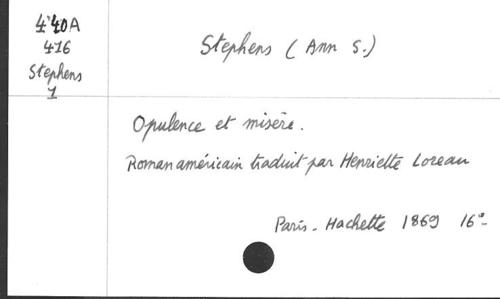 440A
416
Stephens
1
Stephens (Ann S.)
Opulence et misère.
Roman américain traduit par Henriette Loreau
Paris - Hachette 1869 16°-